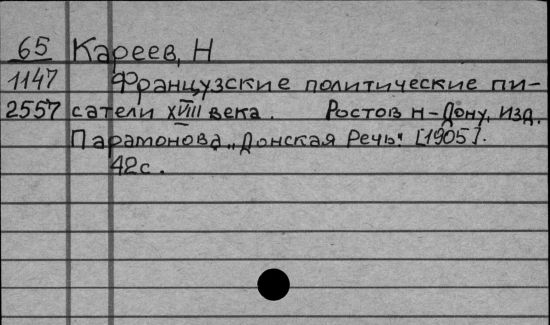 65 Кареев, Н
1147 Французские политические пи-
2557 сатели XVIII века. Ростов н-Дону, изд.
Парамонова „Донская Речь“. [1905].
42с.